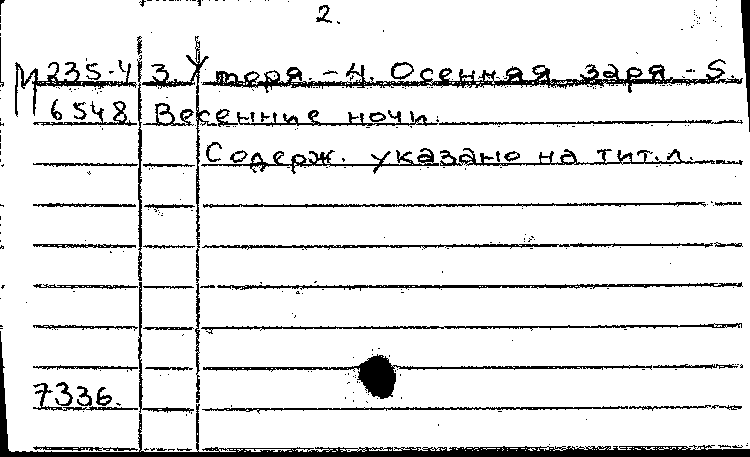 2.
М 235-4 3. У моря. - 4. Осенняя заря. - 5.
6548 Весенние ночи.
Содерж. указано на тит. л.
7336.